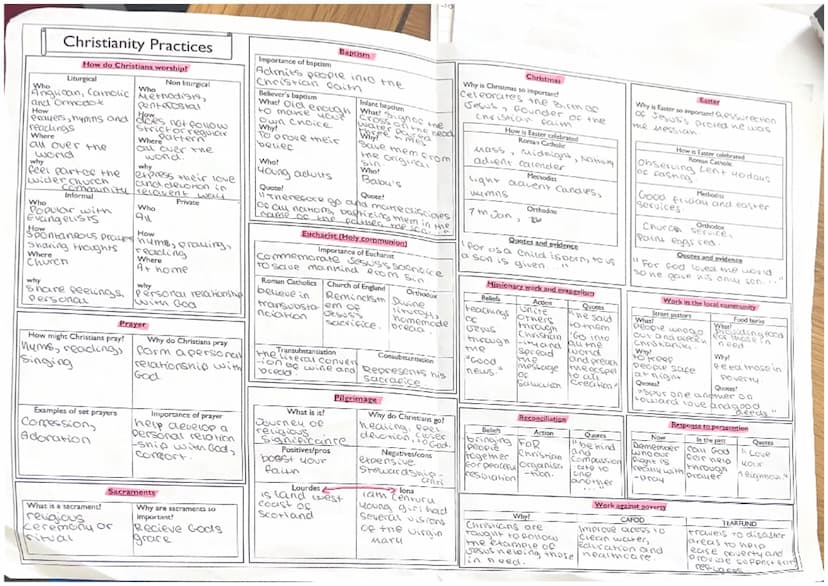 Christianity Practices
How do Christians worship?
Liturgical
Who
Anglican, Catholic
and Orthodox
How
prayers, hymns and
readings
Where
all over the
world
why
feel part of the
wider church
community
Non liturgical
Who
Methodists,
pentecostal
How
does not follow
strict or regular
pattern
Where
all over the
world.
why
express their love
and devotion in
relevent way
Informal
Who
Popular with
Evangelists
How
Spontaneous prayer
sharing thoughts
Where
Church
why
share feelings,
personal
Private
Who
All
How
hyms, praying,
reading
Where
At home
why
personal relationship
with God
Prayer
How might Christians pray?
hyms, reading,
singing
Why do Christians pray
form a personal
relationship with
God.
Examples of set prayers
Confession,
Adoration
Importance of prayer
help develop a
personal relation
-ship with God,
comfort.
Sacraments
What is a sacrament?
religious
ceremony or
ritual
Why are sacraments so
important?
Recieve Gods
grace
Baptism
Importance of baptism
Admits people into the
Christian faith
Believer's baptism
What? Old enough
to make your
own choice
Why?
To prove their
belief
Who?
Young adults
Infant baptism
What? sign of the
cross on the
water
Why?
save them from
the original
sin
Who?
Baby's
Quote?
"therefore go and make disciples
of all nations, baptizing them in the
name of the father the son
Eucharist (Holy communion)
Importance of Eucharist
Commemorate Jesus's sacrifice
to save mankind from sin
Roman Catholics
believe in
transubsta-
nciation
Church of England
Orthodox
Divine
liturgy,
homemade
bread
Transubstantiation
the literal convers
-ion of wine and
bread
Consubstantiation
Represents his
sacrifice
Pilgrimage
What is it?
Journey of
religious
significance
Why do Christians go?
healing, feel
devotion, closer
to God.
Positives/pros
boost your
faith
Negatives/cons
expensive
Lourdes
island west
coast of
Scotland
Iona
young girl had
several visions
of the virgin
mary
Christmas
Why is Christmas so important?
Celebrates the birth of
Jesus, founder of the
christian faith
How is Easter celebrated
Roman Catholic
mass, midnight,
advent calender
Methodist
light advent candles,
hymns
Orthodox
7th Jan,
Quotes and evidence
"for us a child is born, to us
a son is given..."
Easter
Why is Easter so important? Ressurection
of Jesus's proved he was
the messiah
How is Easter celebrated
Roman Catholic
observing lent 40 days
of fasting
Methodist
Good friday and easter
services
Orthodox
Church service,
paint eggs red.
Quotes and evidence
"For God loved the world
so he gave his only son..."
Missionary work and evangelism
Beliefs
teachings
of
Jesus
through
the
"Good
news"
Action
Unite
others
through
christian
-ity and
spread
the
message
of
salvation
Quotes
"He said
to them
"Go into
all the
world
and preach
the gospel
to all
creation"
Work in the local community
Street pastors
What?
Why?
to keep
people safe
at night
Food banks
What?
Providing food
for those in
need
Why?
help those in
poverty
Quotes?
"spur one another on
toward love and good
deeds"
Reconciliation
Beliefs
bringing
people
together
for peaceful
resolution
Action
For
Christian
organisa
-tion.
Quotes
"be kind
and
compassion
-ate to
one
another ..."
Response to persecution
Now
Remember
who our
fight is
really with
-pray
In the past
call God
for help
through
prayer
Quotes
"Love
your
neighbour"
Work against poverty
Why?
Christians are
taught to follow
the example of
Jesus helping those
in need.
CAFOD
improve access to
clean water,
education and
healthcare.
TEARFUND
travels to disaster
areas to help
ease poverty and
provide support and
resources